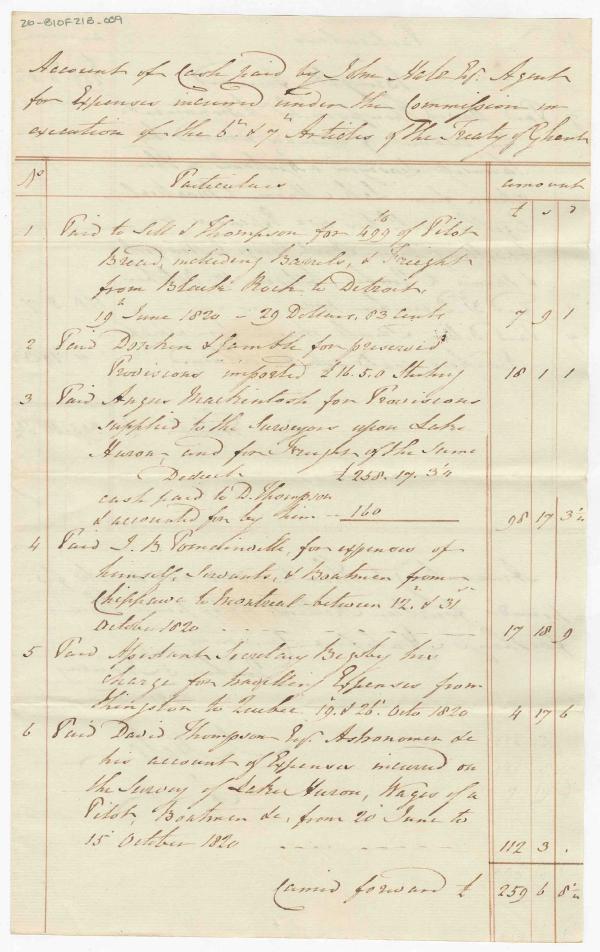 20-B10F21B-009
Account of Cash paid by John Hale Esq. Agent
for Expenses incurred under the Commission in
execution of the 6th & 7th Articles of the Treaty of Ghent
No Particulars amount
£ s d
1 Paid to Sill & Thompson for 499 lb of Pilot
Bread, including Barrels, & Freight
from Black Rock to Detroit,
19th June 1820 – 29 Dollars, 83 cents 7 9 1
2 Paid Donkin & Gamble for preserved
Provisions imported £16.5.0 Sterling 18 1 1
3 Paid Angus Mackintosh for Provisions
supplied to the Surveyors upon Lake
Huron, and for Freight of the same
Deduct £258.17.3½
cash paid to D. Thompson
& accounted for by him – 160 98 17 3½
4 Paid J. B. Pomainville, for expenses of
himself, Servants, & Boatmen from
Chippawa to Montreal between 12th & 31st
October 1820 17 18 9
5 Paid Assistant Secretary Bigsby his
charge for travelling Expenses from
Kingston to Quebec 19th & 26th Octo 1820 4 17 6
6 Paid David Thompson Esq. Astronomer &c
his account of Expenses incurred on
the Survey of Lake Huron, Wages of a
Pilot, Boatmen &c, from 20th June to
15th October 1820 112 3 .
Carried forward £ 259 6 8½